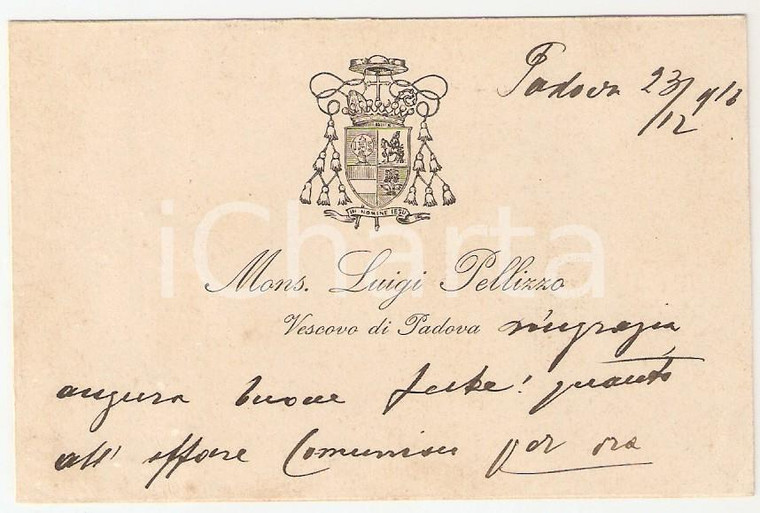 Padova 23/12 918
IN NOMINE IESU
iCharta
Mons. Luigi Pellizzo
Vescovo di Padova ringrazia
augura buone feste! quanto
all' affare Comunion per ora